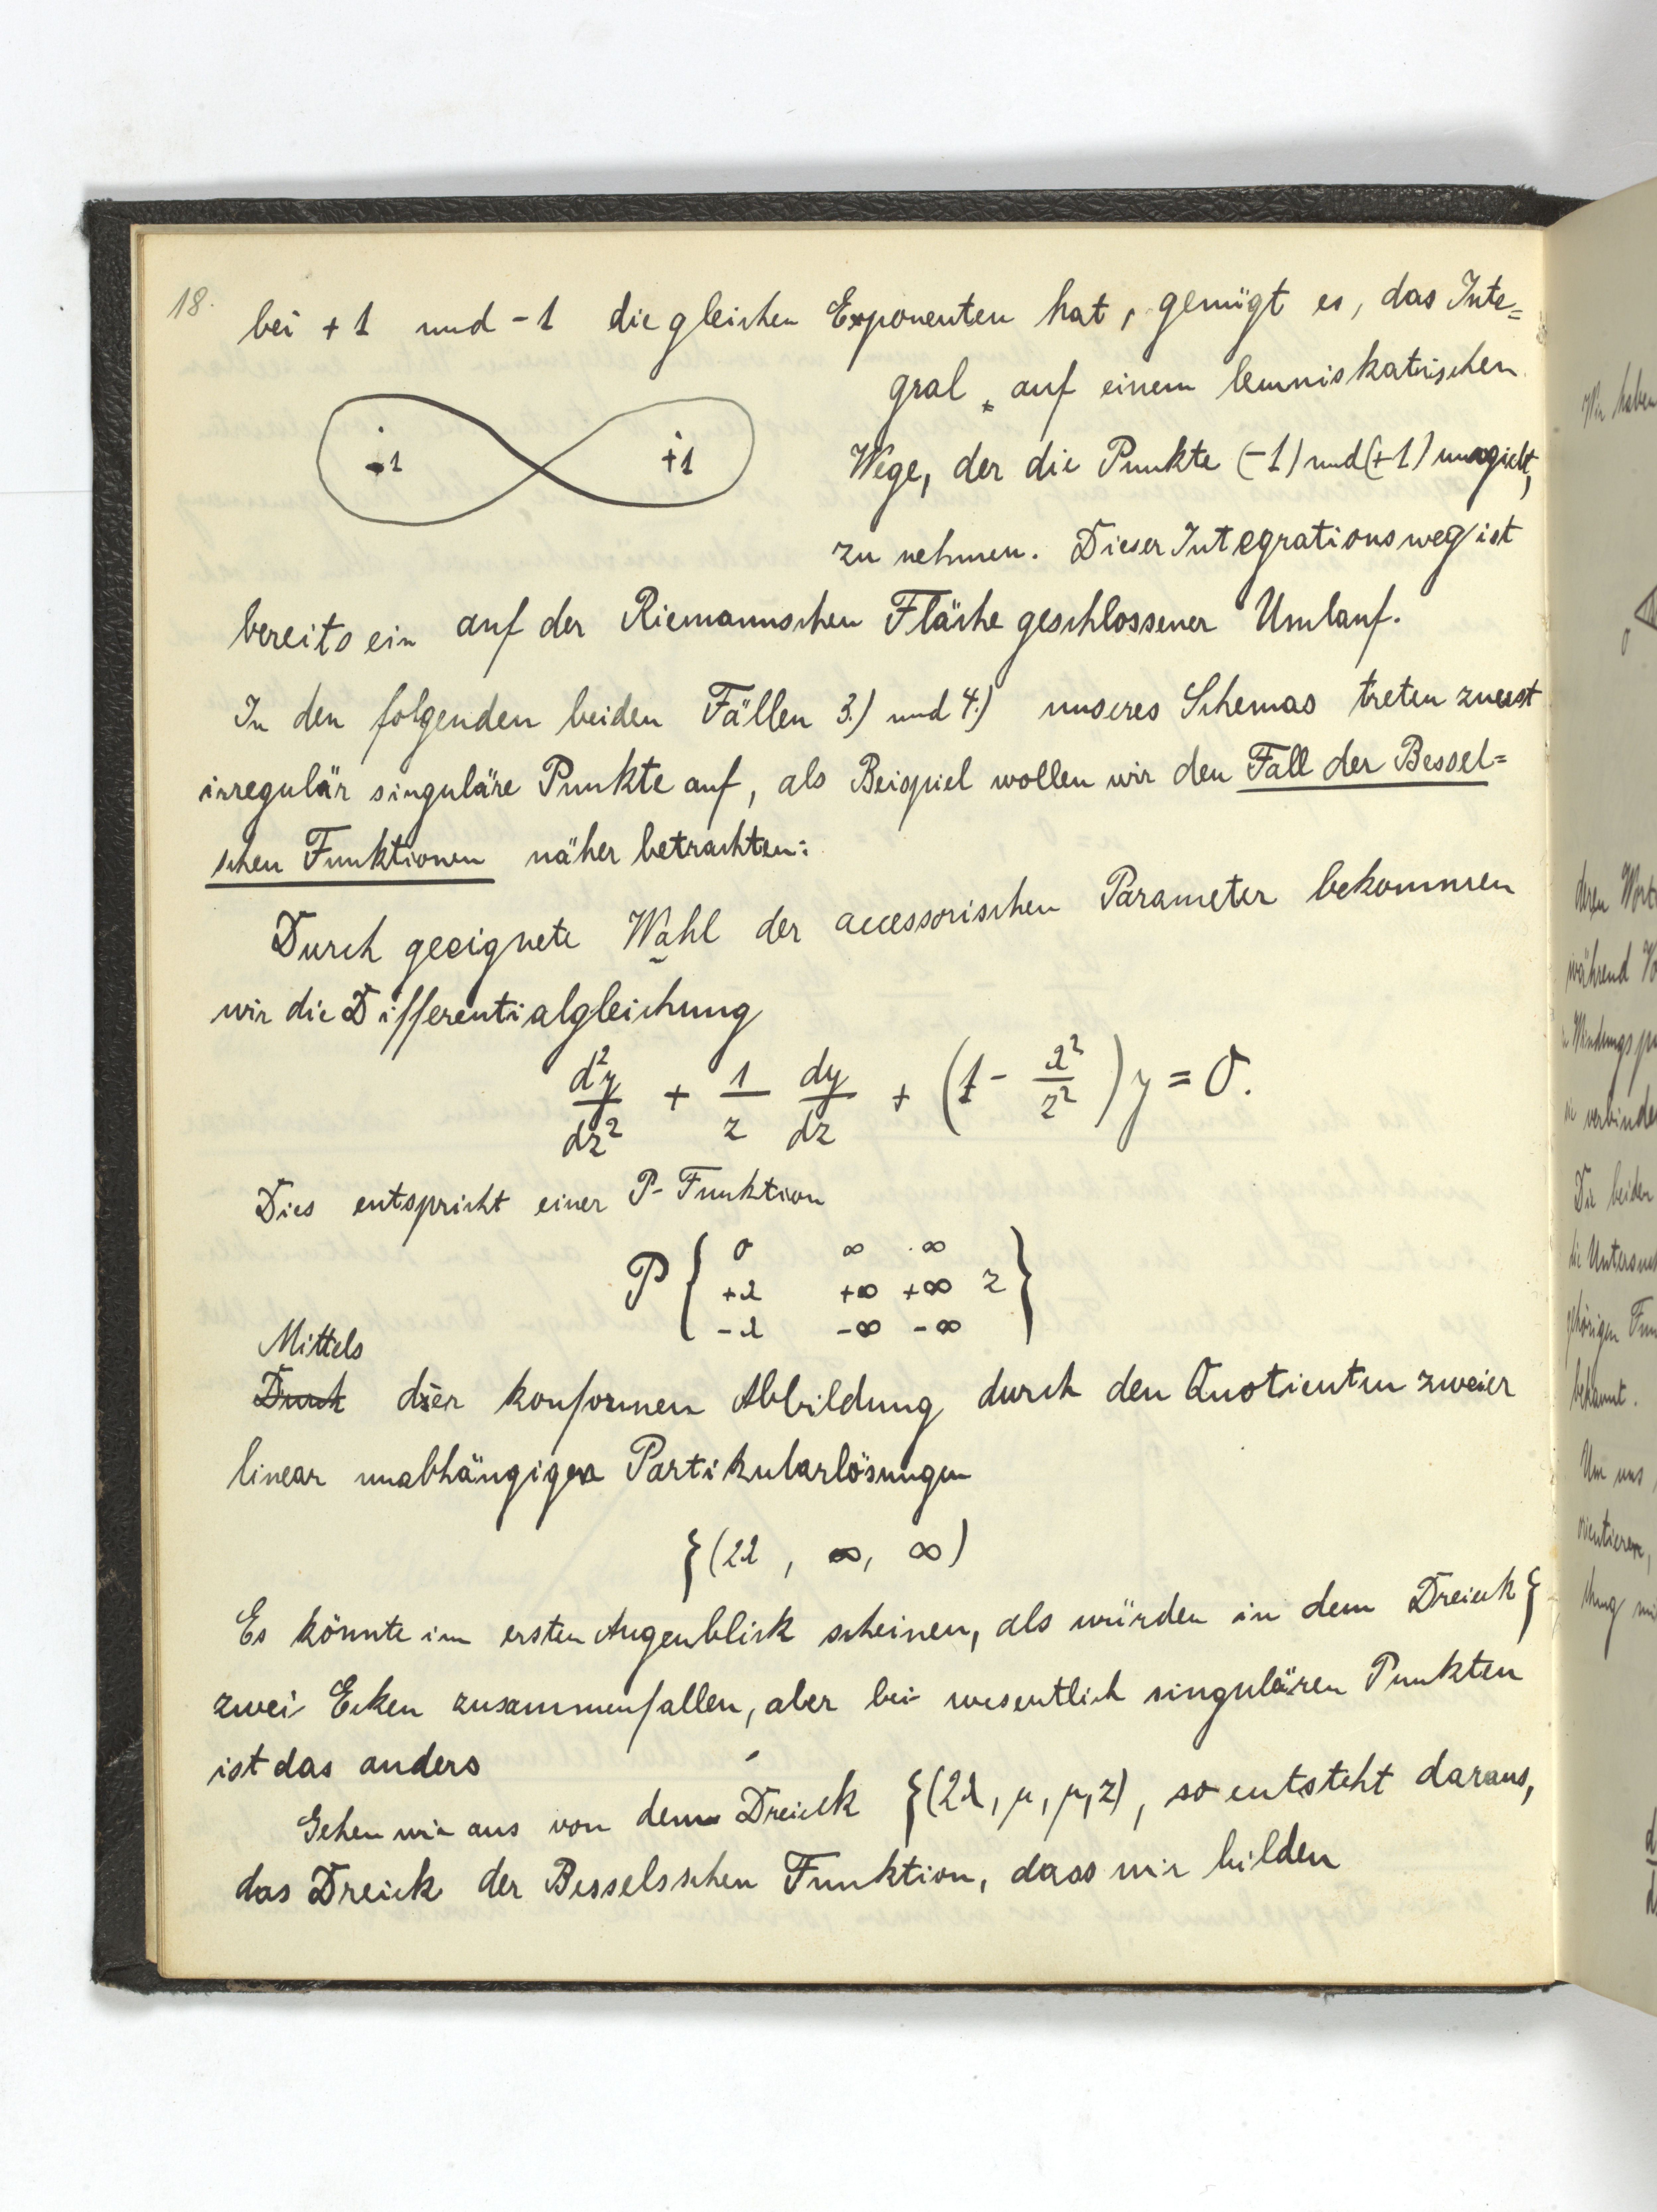 18.
bei +1 und -1 die gleichen Exponenten hat, genügt es, das Inte=
gral auf einem lemniskatischen
-1 +1
Wege, der die Punkte (-1) und (+1) umgiebt,
zu nehmen. Dieser Integrationsweg ist
bereits ein auf der Riemannschen Fläche geschlossener Umlauf.
In den folgenden beiden Fällen 3.) und 4.) unseres Schemas treten zuerst
irregulär singuläre Punkte auf, als Beispiel wollen wir den Fall der Bessel=
schen Funktionen näher betrachten:
Durch geeignete Wahl der accessorischen Parameter bekommen
wir die Differentialgleichung
d²y/dz² + 1/z dy/dz + (1 - λ²/z²) y = 0.
Dies entspricht einer P-Funktion
P { 0 ∞ ∞
+λ +∞ +∞ z }
-λ -∞ -∞
Mittels
Durch der konformen Abbildung durch den Quotienten zweier
linear unabhängiger Partikularlösungen
{(2λ, ∞, ∞)
Es könnte im ersten Augenblick scheinen, als würden in dem Dreieck {
zwei Ecken zusammenfallen, aber bei wesentlich singulären Punkten
ist das anders
Gehen wir aus von dem Dreieck {(2λ, μ, μ, z), so entsteht daraus,
das Dreieck der Besselsschen Funktion, dass wir bilden
Wir haben
0
deren
während
verbinden
Die beiden
bekannt.
Um uns
orientieren,